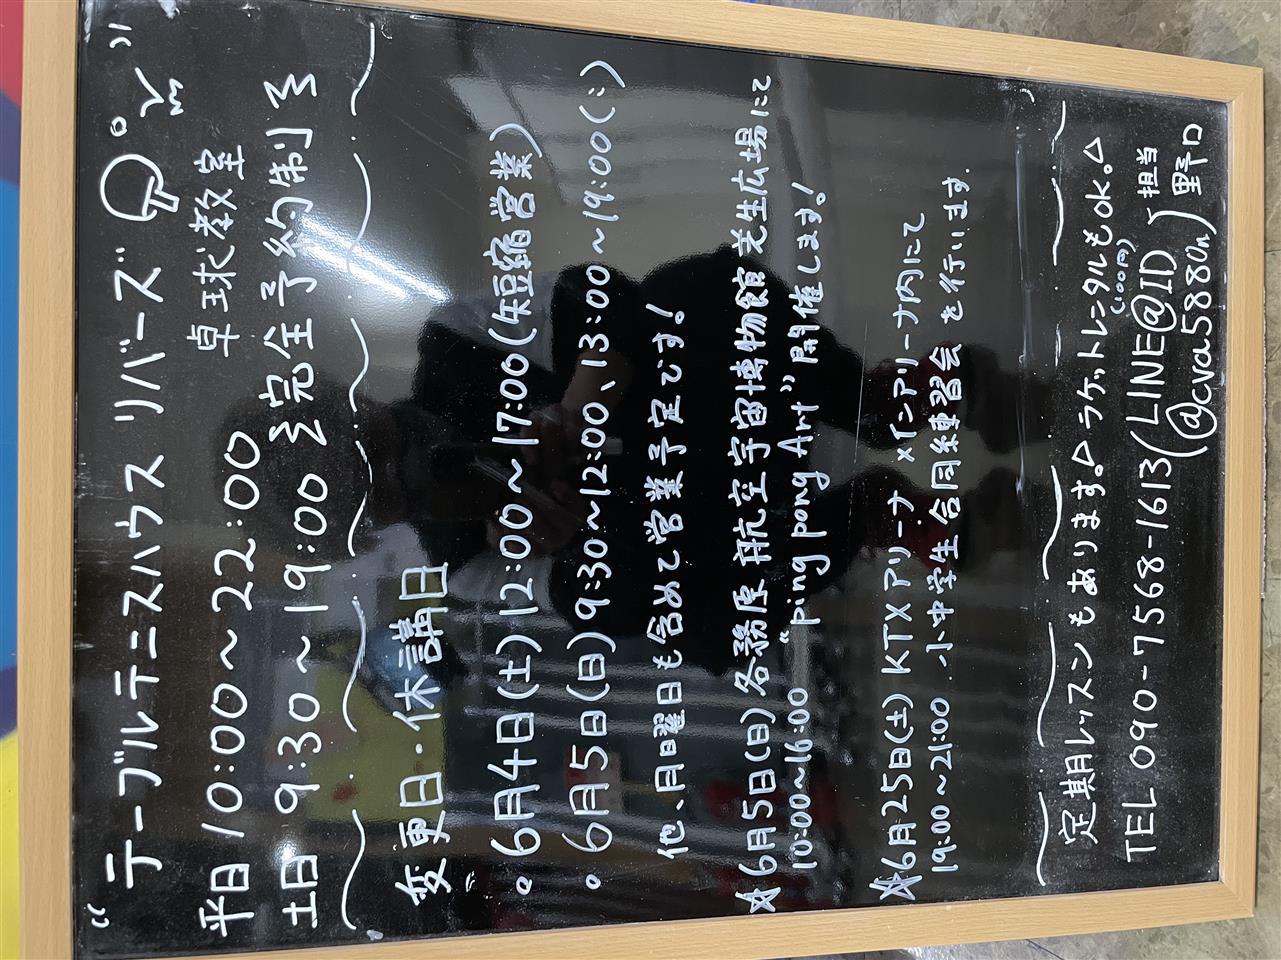 “テーブルテニスハウス リバーズ”
平日 10:00〜22:00 卓球教室
土日 9:30〜19:00 完全予約制
変更日・休講日
・6月4日(土)12:00〜17:00(短縮営業)
・6月5日(日)9:30〜12:00、13:00〜19:00(:)
他、月曜日も含めて営業予定です!
☆6月5日(日)各務原 航空宇宙博物館 芝生広場にて
10:00〜16:00 “ping pong Art” 開催します!
☆6月25日(土)KTXアリーナ メインアリーナ内にて
19:00〜21:00 小中学生合同練習会を行います.
定期レッスンもあります。△ラケットレンタルもOK。△
(100円)
TEL 090-7568-1613(LINE@ID 担当
@cva5880n) 野口